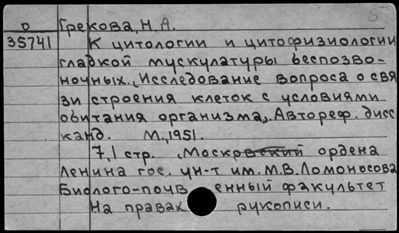 О Грекова, Н. А.
35741 К цитологии и цитофизиологии
гладкой мускулатуры беспозво-
ночных. „Исследование вопроса о свя
зи строения клеток с условиями
обитания организма„. Автореф. дисс
канд. М., 1951.
7,1 стр. „Московский ордена
Ленина гос. ун-т им. М.В. Ломоносова
Биолого-почв енный факультет
На правах рукописи.